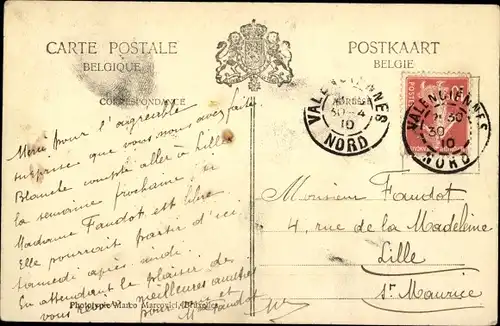 CARTE POSTALE
BELGIQUE
CORRESPONDANCE
POSTKAART
BELGIE
VALENCIENNES
30 - 4
10
NORD
VALENCIENNES
30
10
NORD
POSTES
Merci pour l'agréable
surprise que vous nous avez faite
Blanche compte aller à Lille
la semaine prochaine, si
Madame Faudot est libre
Elle pourrait partir d'ici
samedi après midi.
En attendant le plaisir de
vous meilleures amitiés
pour et
Mme Faudot
Monsieur Faudot
4, rue de la Madeleine
Lille
St Maurice
Phototypie Marco Marcovici, Bruxelles